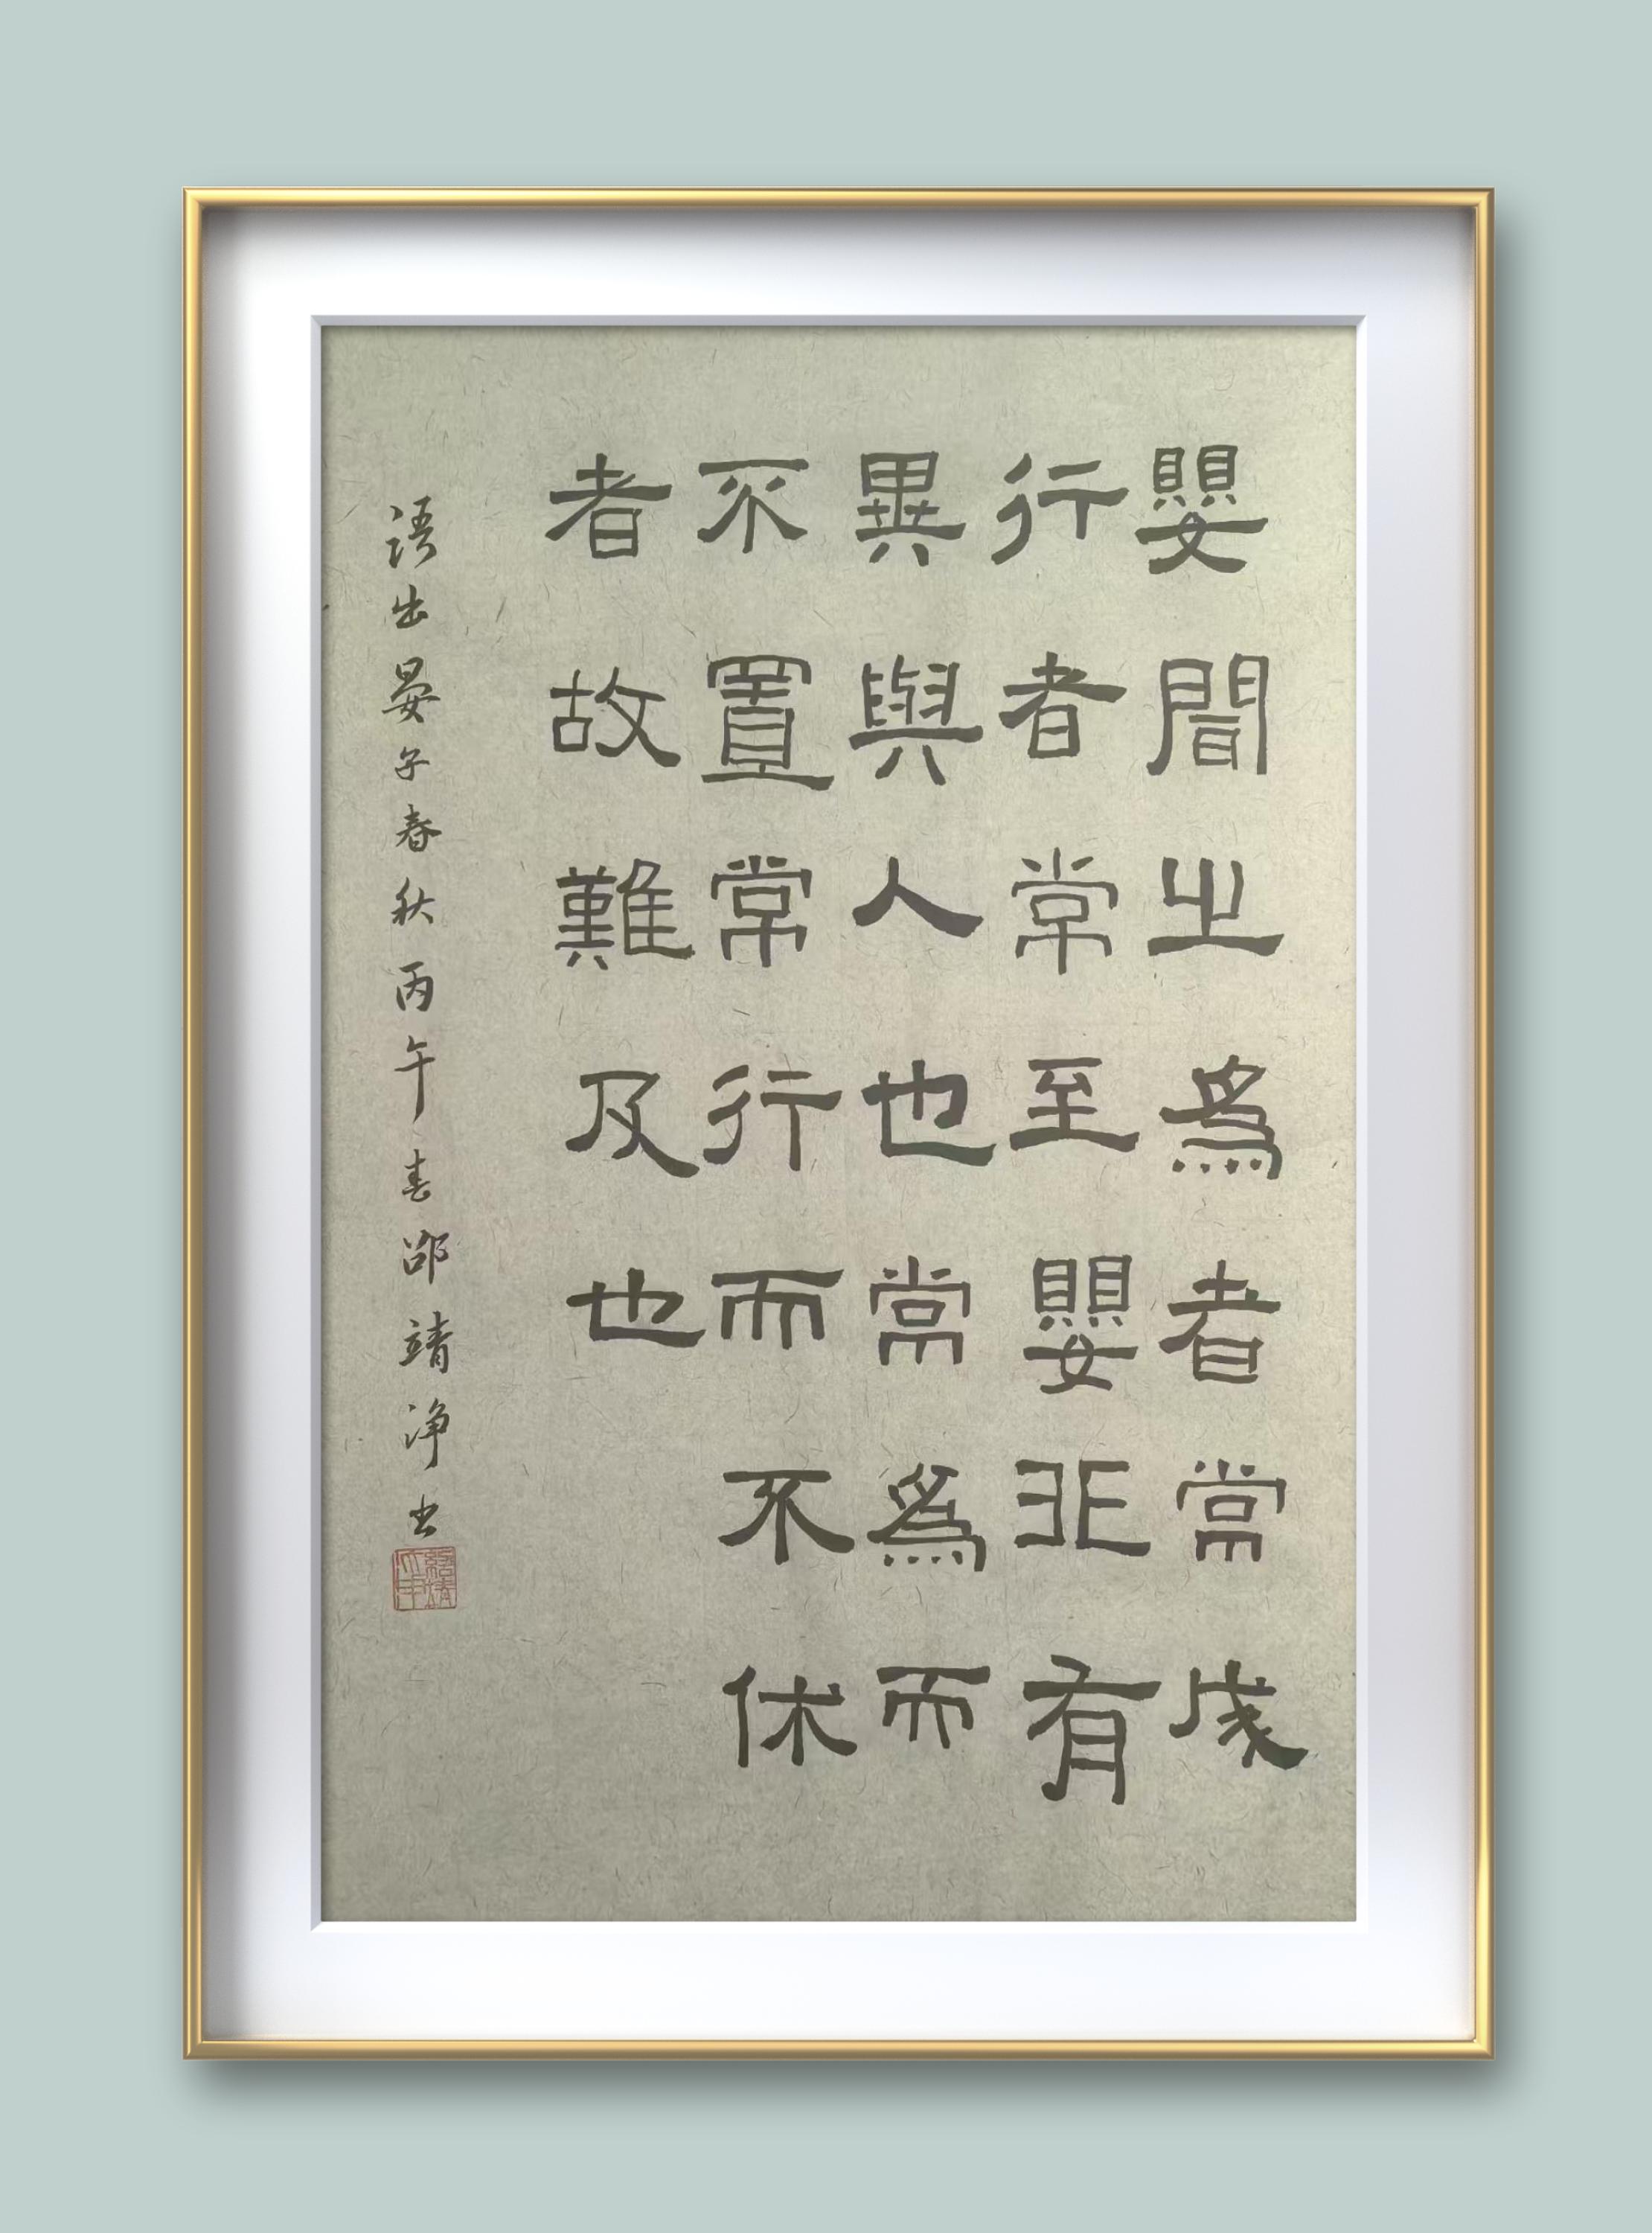 嬰聞之為者常成
行者常至嬰非有
異與人也常為而
不置常行而不休
者故難及也
语出晏子春秋丙午春邵靖净书